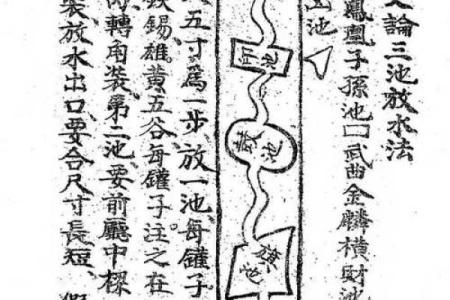 論三池放水法
鳳凰子孫池口武曲金麟橫財池
池
印池
鼓池
旗池
五寸為一步、放一池、每鑵子
錫雄黃五谷每鑵子。注之在
轉角裝、第二池、要前廳中樑
裝放水出口、要合尺寸長短、